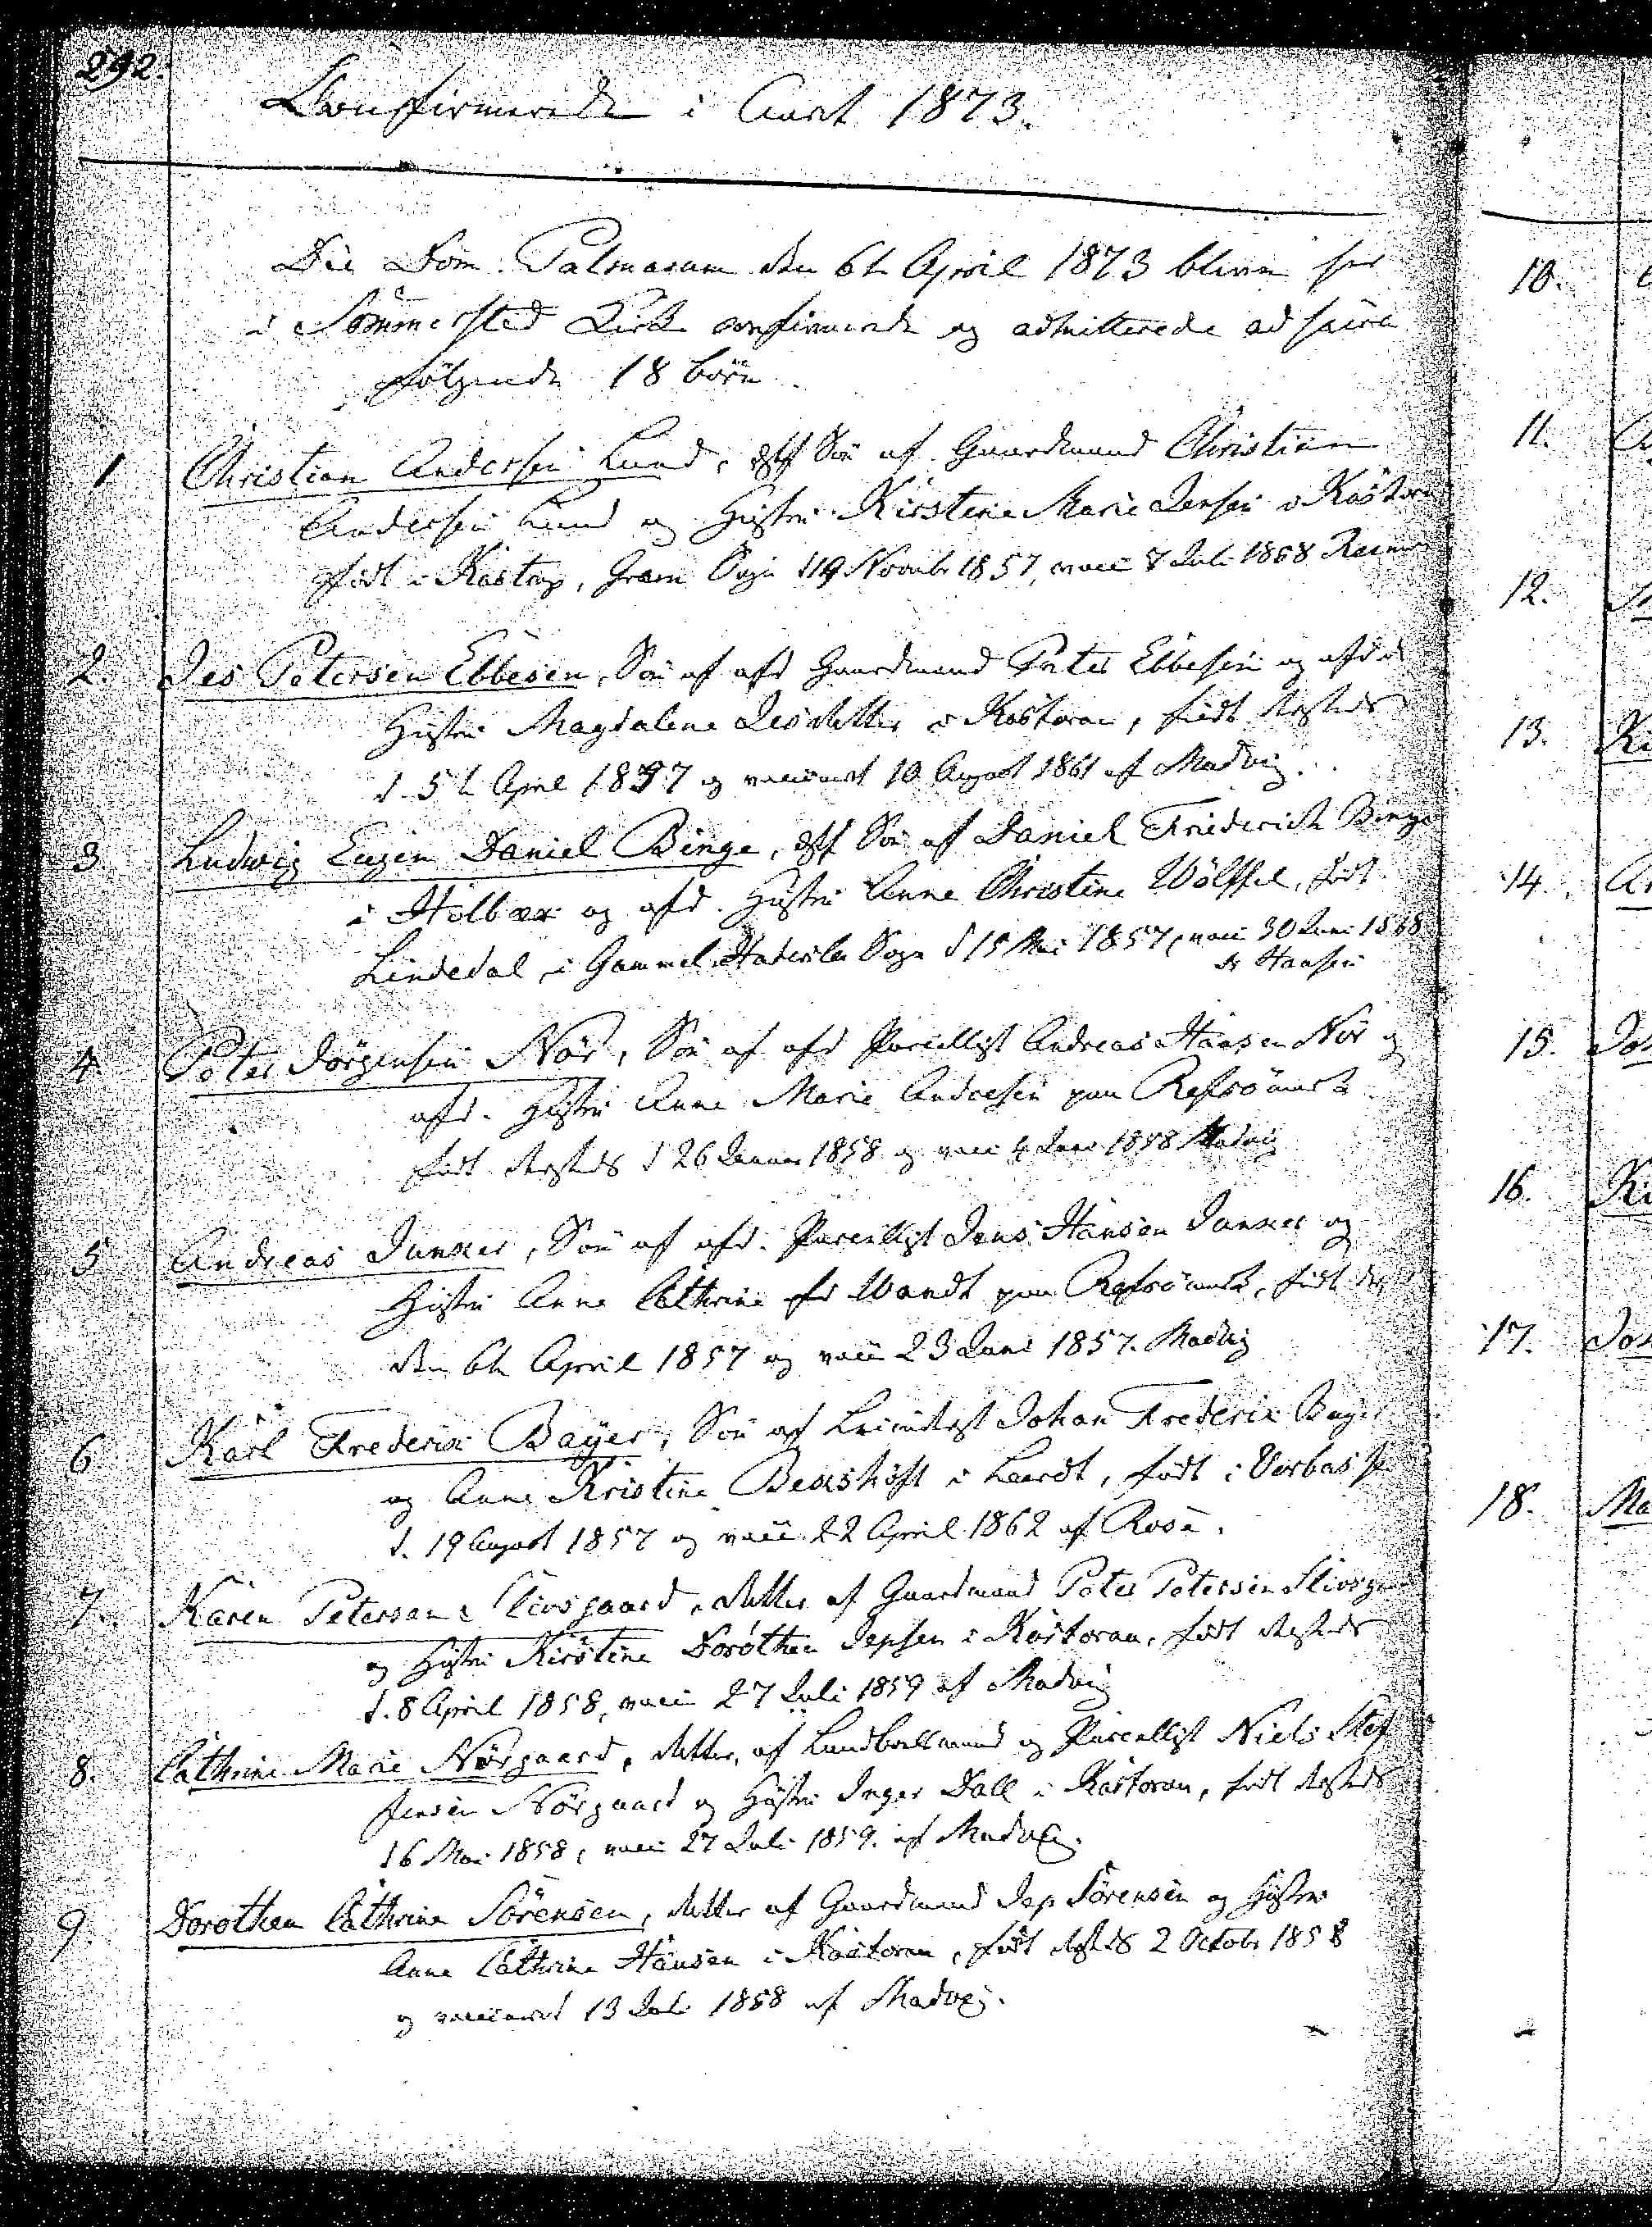 292.
Confirmerede i Aaret 1873.
Die Dom. Palmarum den 6te April 1873 bleven her
i Sommersted Kirke confirmerede og admitterede ad sacra
følgende 18 börn
1 Christian Andersen Lund, Sön af Gaardmand Christian
Andersen Lund og Hustru Kirstine Marie Jensen i Kastvra
född i Kastrup, Gram Sogn d 19 Novembr 1857, vacc 7 Juli 1858
2. Jes Petersen Ebbesen, Sön af afd Gaardmand Peter Ebbesen og afd
Hustru Magdalene Jesdatter i Kastvraa, född dersteds
d. 5te April 1857 og vaccineret 10 August 1861 af Madvig.
3 Ludwig Eugen Daniel Binge, Sön af Daniel Friederich Binge
i Holbæk og afd. Hustru Anne Christine Wölffel, född
Lindedal i Gammel Haderslev Sogn d 15 Mai 1857, vacc 30 Juni 1858
Hansen
4 Peter Jörgensen Nör, Sön af afd Parcellist Andreas Hansen Nör og
afd. Hustru Anne Marie Andresen paa Refsömark
född dersteds d 26 Januar 1858 og vacc 4 Juni 1858 Madvig
5 Andreas Junker, Sön af afd. Parcellist Jens Hansen Junker og
Hustru Anne Cathrine fd Wandt paa Refsömark, född derst
den 6te April 1857 og vacc 23 Juni 1857. Madvig
6 Karl Frederik Bayer, Sön af Johan Frederik Bayer
og Anne Kristine Beckshöft i Leerdt, född i Verbas
d. 19 August 1857 og vacc 22 April 1862 af Rosé.
7. Karen Petersen Slivsgaard, datter af Gaardmand Peter Petersen Slivsg
og Hustru Kirstine Dorothea Jepsen i Kastvraa, född dersteds
d. 8 April 1858, vacc 27 Juli 1859 af Madvig
8. Cathrine Marie Nörgaard, datter af Landbolsmand og Parcellist Niels
Jensen Nörgaard og Hustru Inger Dall i Kastvraa, född dersteds
16 Mai 1858, vacc 27 Juli 1859. af Madvig.
9. Dorothea Cathrine Sörensen, datter af Gaardmand Jep Sörensen og Hustru
Anne Cathrine Hansen i Kastvraa, född dersteds 2 Octobr 1858
og vaccineret 13 Juli 1858 af Madvig.
10.
11.
12.
13. Ki
14.
15. Joh
16. Ki
17. Joh
18. Ma